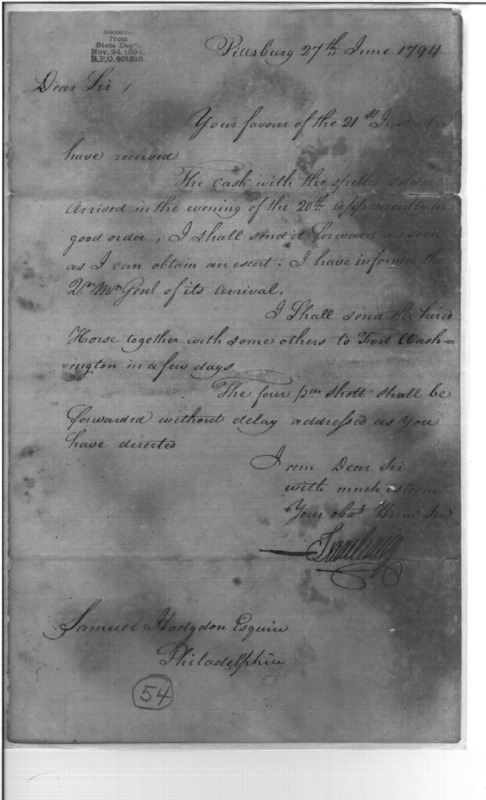 Received
from
State Dep't
Nov. 24, 1894
R.P.O. 401310
Pittsburg 27th June 1794
Dear Sir
Your favour of the 21st Instant I
have received
The cask with the spelter solder
Arrived in the evening of the 20th Apparently in
good order, I shall send it forward as soon
as I can obtain an escort: I have informed the
Qr. Mr. Genl. of its Arrival,
I Shall send the hired
Horse together with some others to Fort Wash=
ington in a few days
The four pr. shott shall be
forwarded without delay addressed as You
have directed
I am Dear Sir
with much esteem
Your obdt. Hum. Servt.
Samuel Hodgdon Esquire
Philadelphia
54